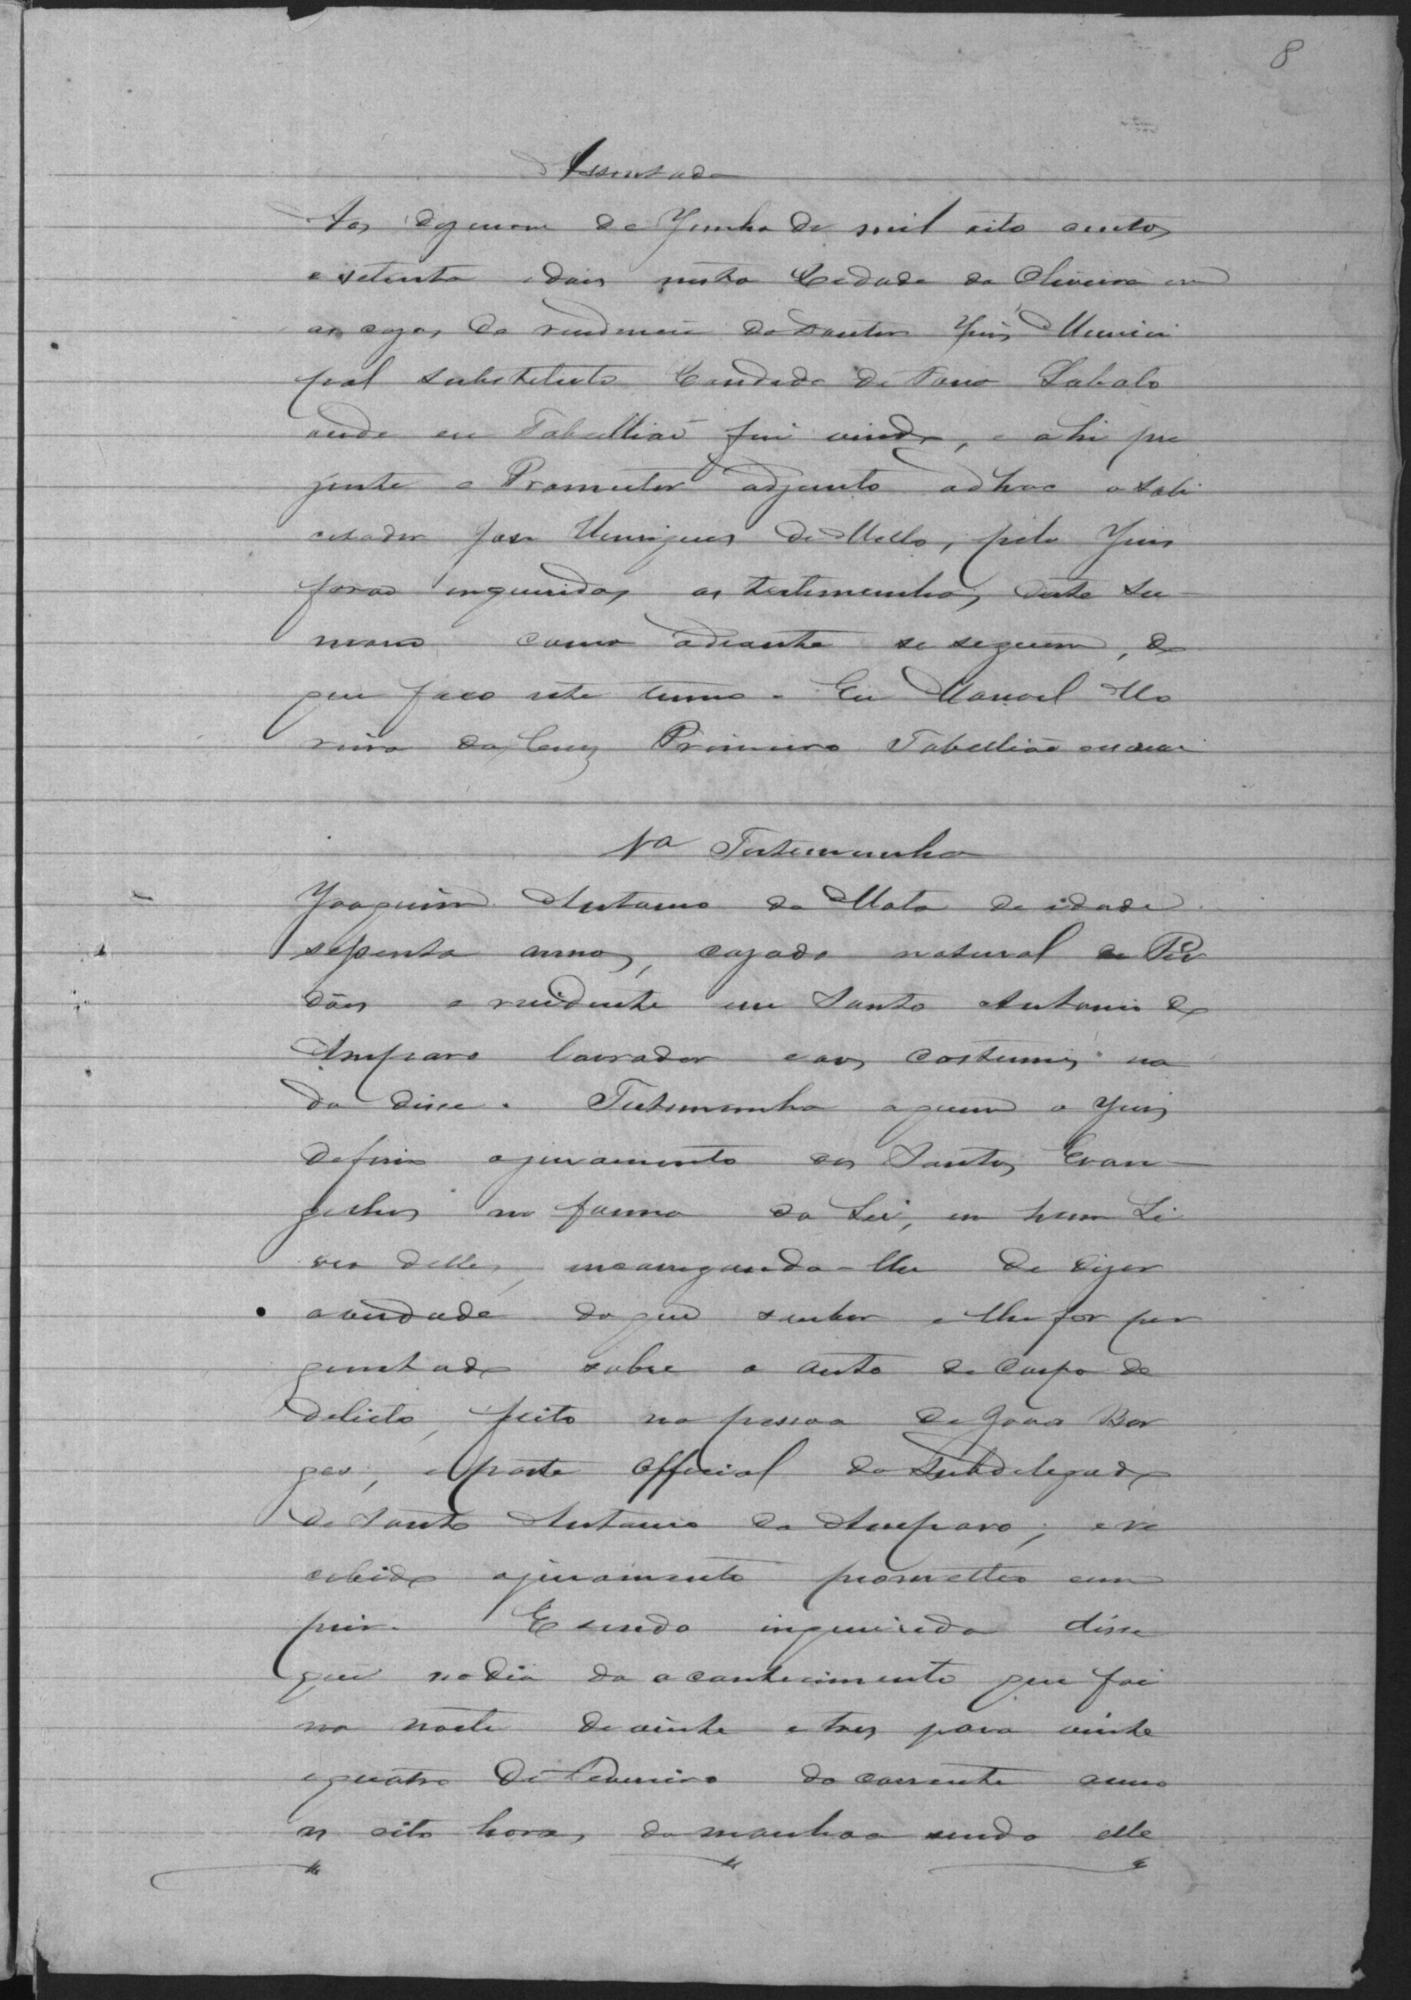 8
Assentada
Aos dezenove de Junho de mil oito centos
e setenta e dois nesta Cidade da Oliveira em
as cazas da residencia do Doutor Juis Munici
pal substituto Candido de Faria Lobato
onde eu Tabellião fui vindo, e ahi pre
zente o Promotor adjunto adhoc o Soli
citador Jose Henriques de Mello, pelo Juis
forao inqueridas as testemunhas deste su-
mario como adiante se seguem, do
que faço este termo. Eu Manoel Mo
reira da Cruz Primeiro Tabellião escrevi
1a Testemunha
Joaquim Antonio da Mata de idade
secenta annos, cazado natural de Per
dões e residente em Santo Antonio do
Amparo lavrador e aos costumes na
da disse. Testemunha a quem o Juis
deferio o juramento aos Santos Evan-
gelhos na forma da Lei, em hum Li
vro delles, encarregando-lhe de dizer
a verdade do que souber e lhe for per
guntado sobre o auto de corpo de
delicto, feito na pessoa de João Bor
ges, e parte official do Subdelegado
de Santo Antonio do Amparo, e re
cebido o juramento prometteo cum
prir. E sendo inquirido disse
que no dia do acontecimento que foi
na noite de vinte e tres para vinte
e quatro de Fevereiro do corrente anno
as oito horas da manhaa sendo elle